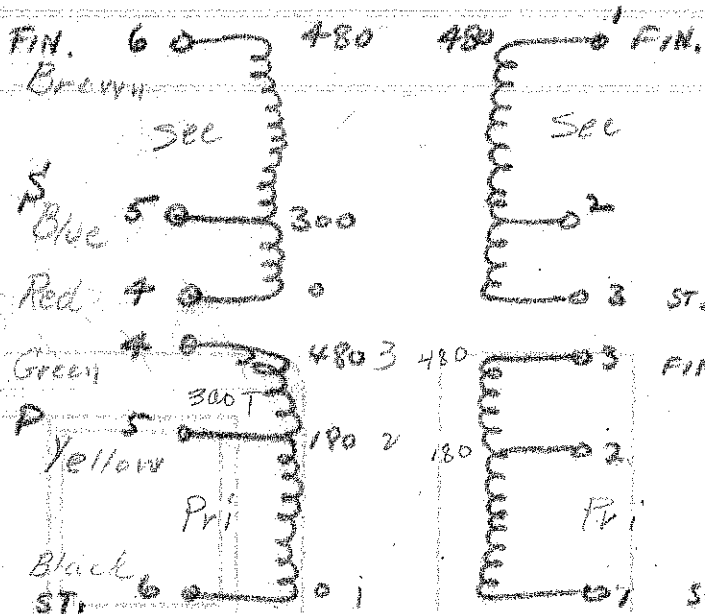 FIN. 6 480 480 1 FIN.
Brown
Sec Sec
S
Blue 5 300 2
Red 4 0 3 ST.
4 480 3 480 3 FIN
Green
300T
P 5 180 2 180 2
Yellow
Pri Pri
Black
ST. 6 0 1 1 S